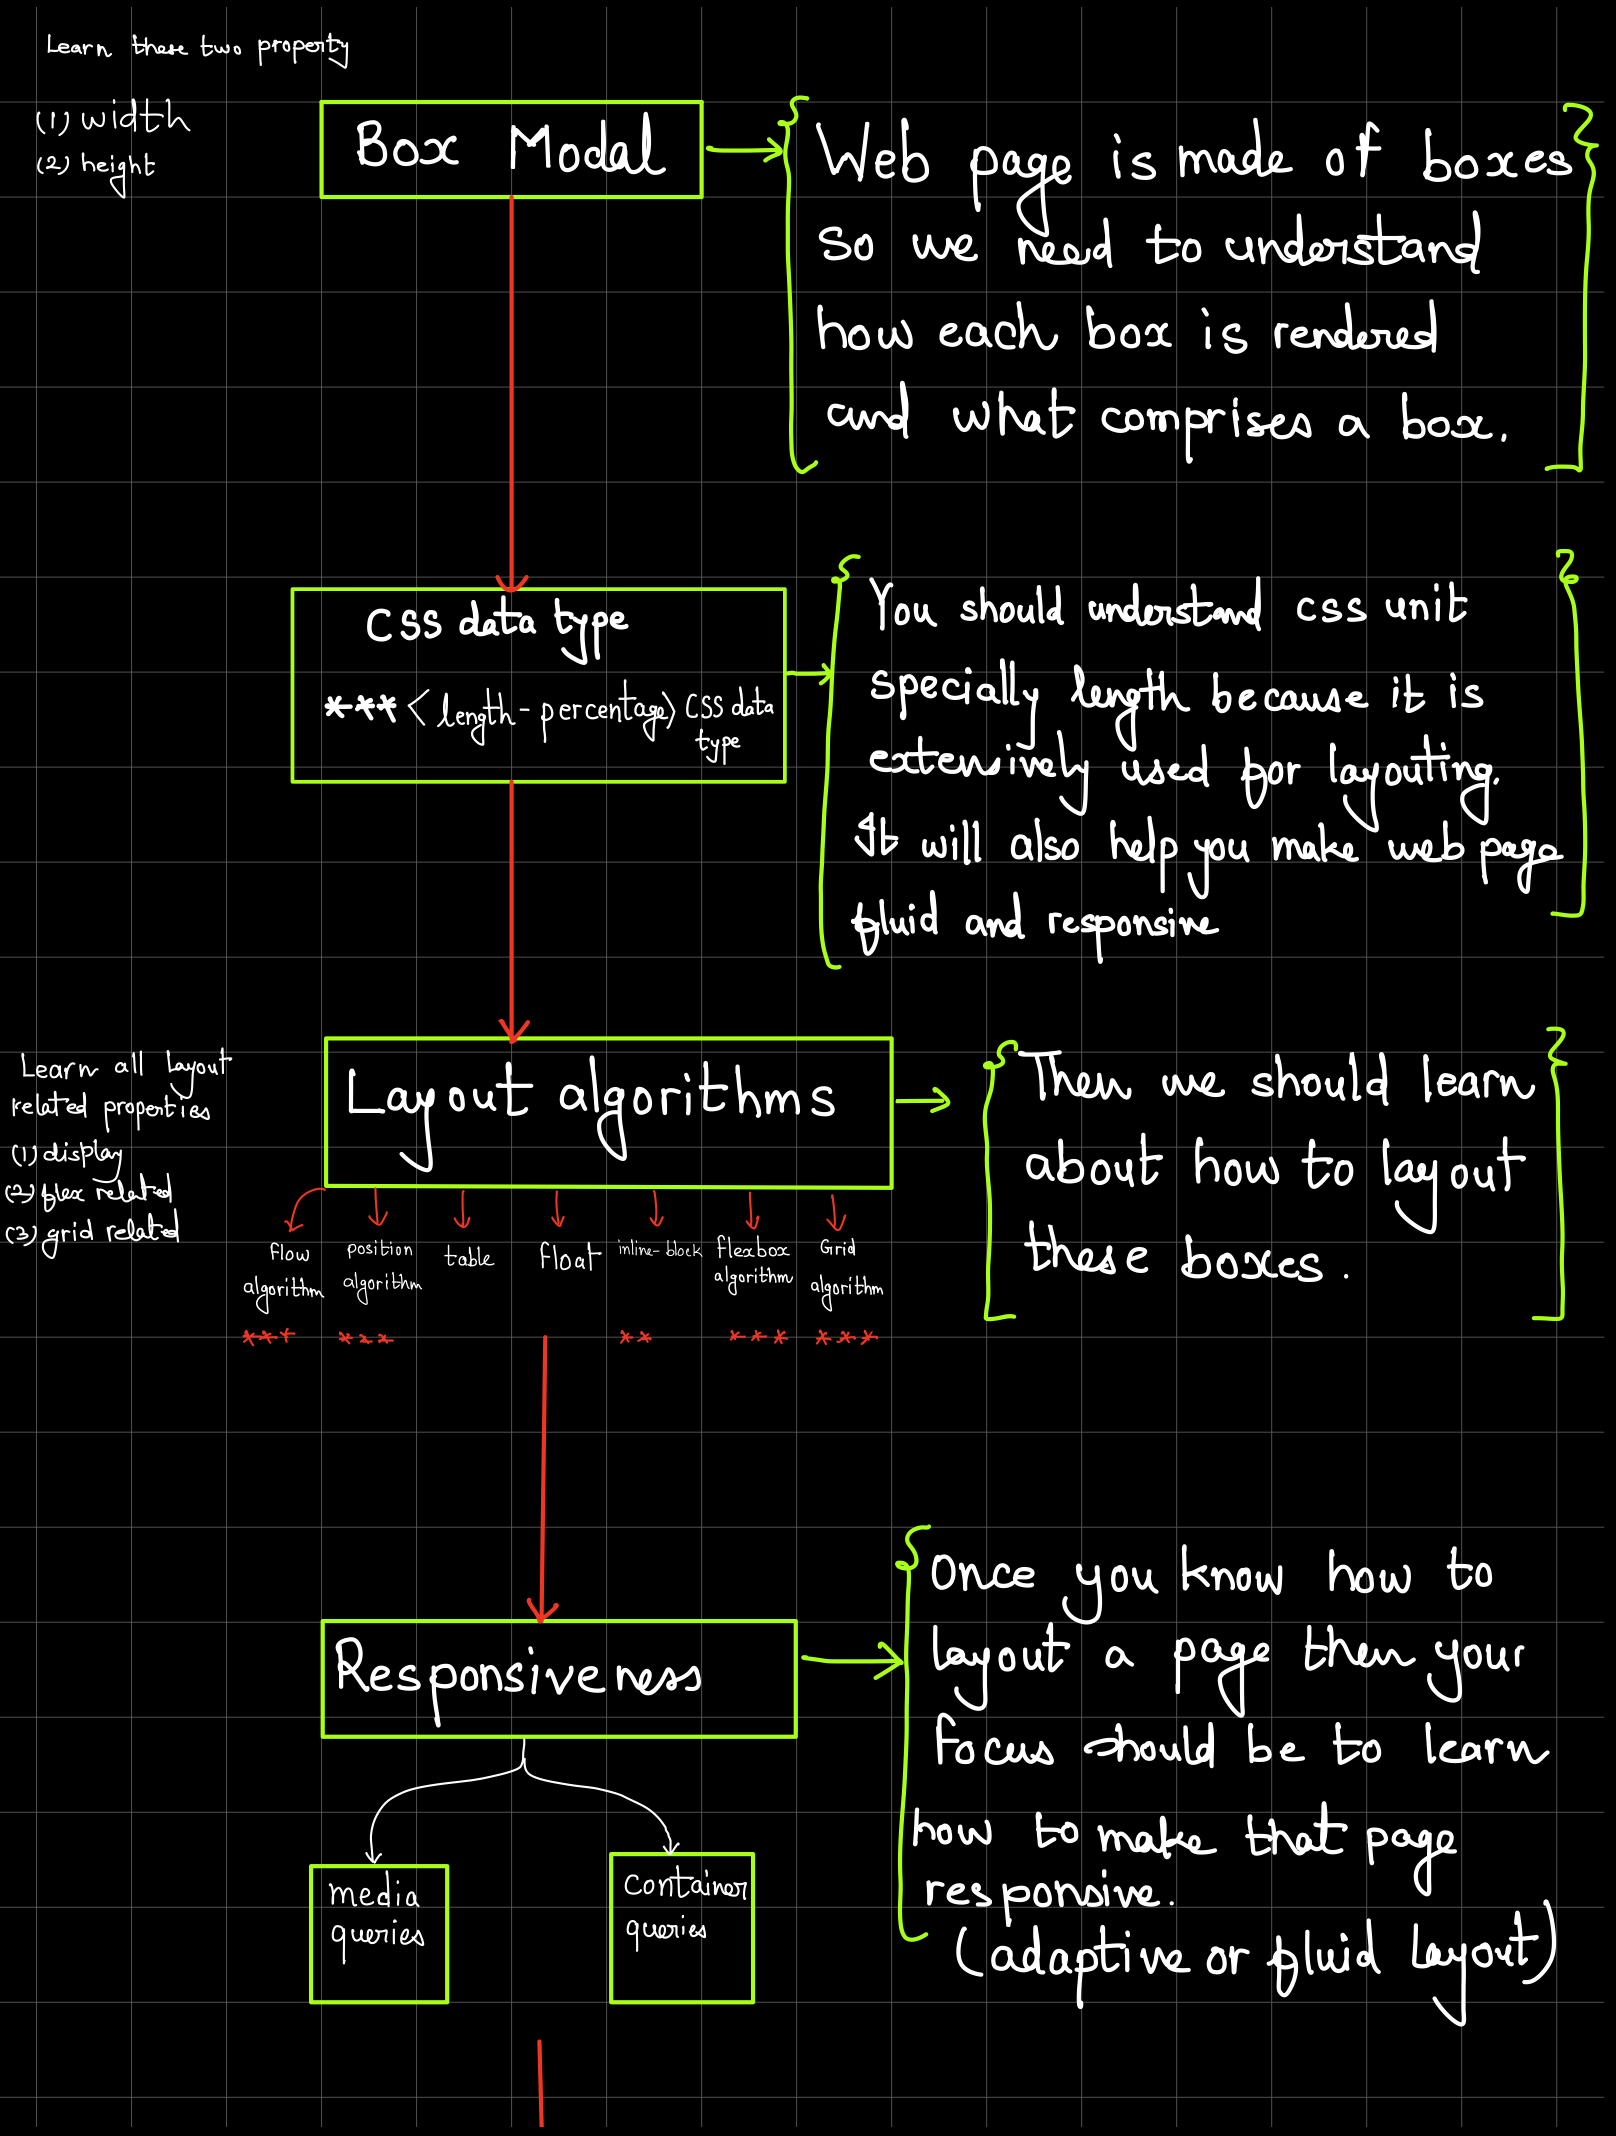 Learn these two property
(1) width
(2) height
Box Modal
Web page is made of boxes
So we need to understand
how each box is rendered
and what comprises a box.
CSS data type
*** <length-percentage> CSS data
type
You should understand css unit
specially length because it is
extensively used for layouting.
It will also help you make web page
fluid and responsive
Learn all layout
related properties
(1) display
(2) flex related
(3) grid related
Layout algorithms
Then we should learn
about how to layout
these boxes.
flow
algorithm
***
position
algorithm
***
table
float
inline-block
**
flexbox
algorithm
***
Grid
algorithm
***
Responsiveness
Once you know how to
layout a page then your
focus should be to learn
how to make that page
responsive.
(adaptive or fluid layout)
media
queries
container
queries